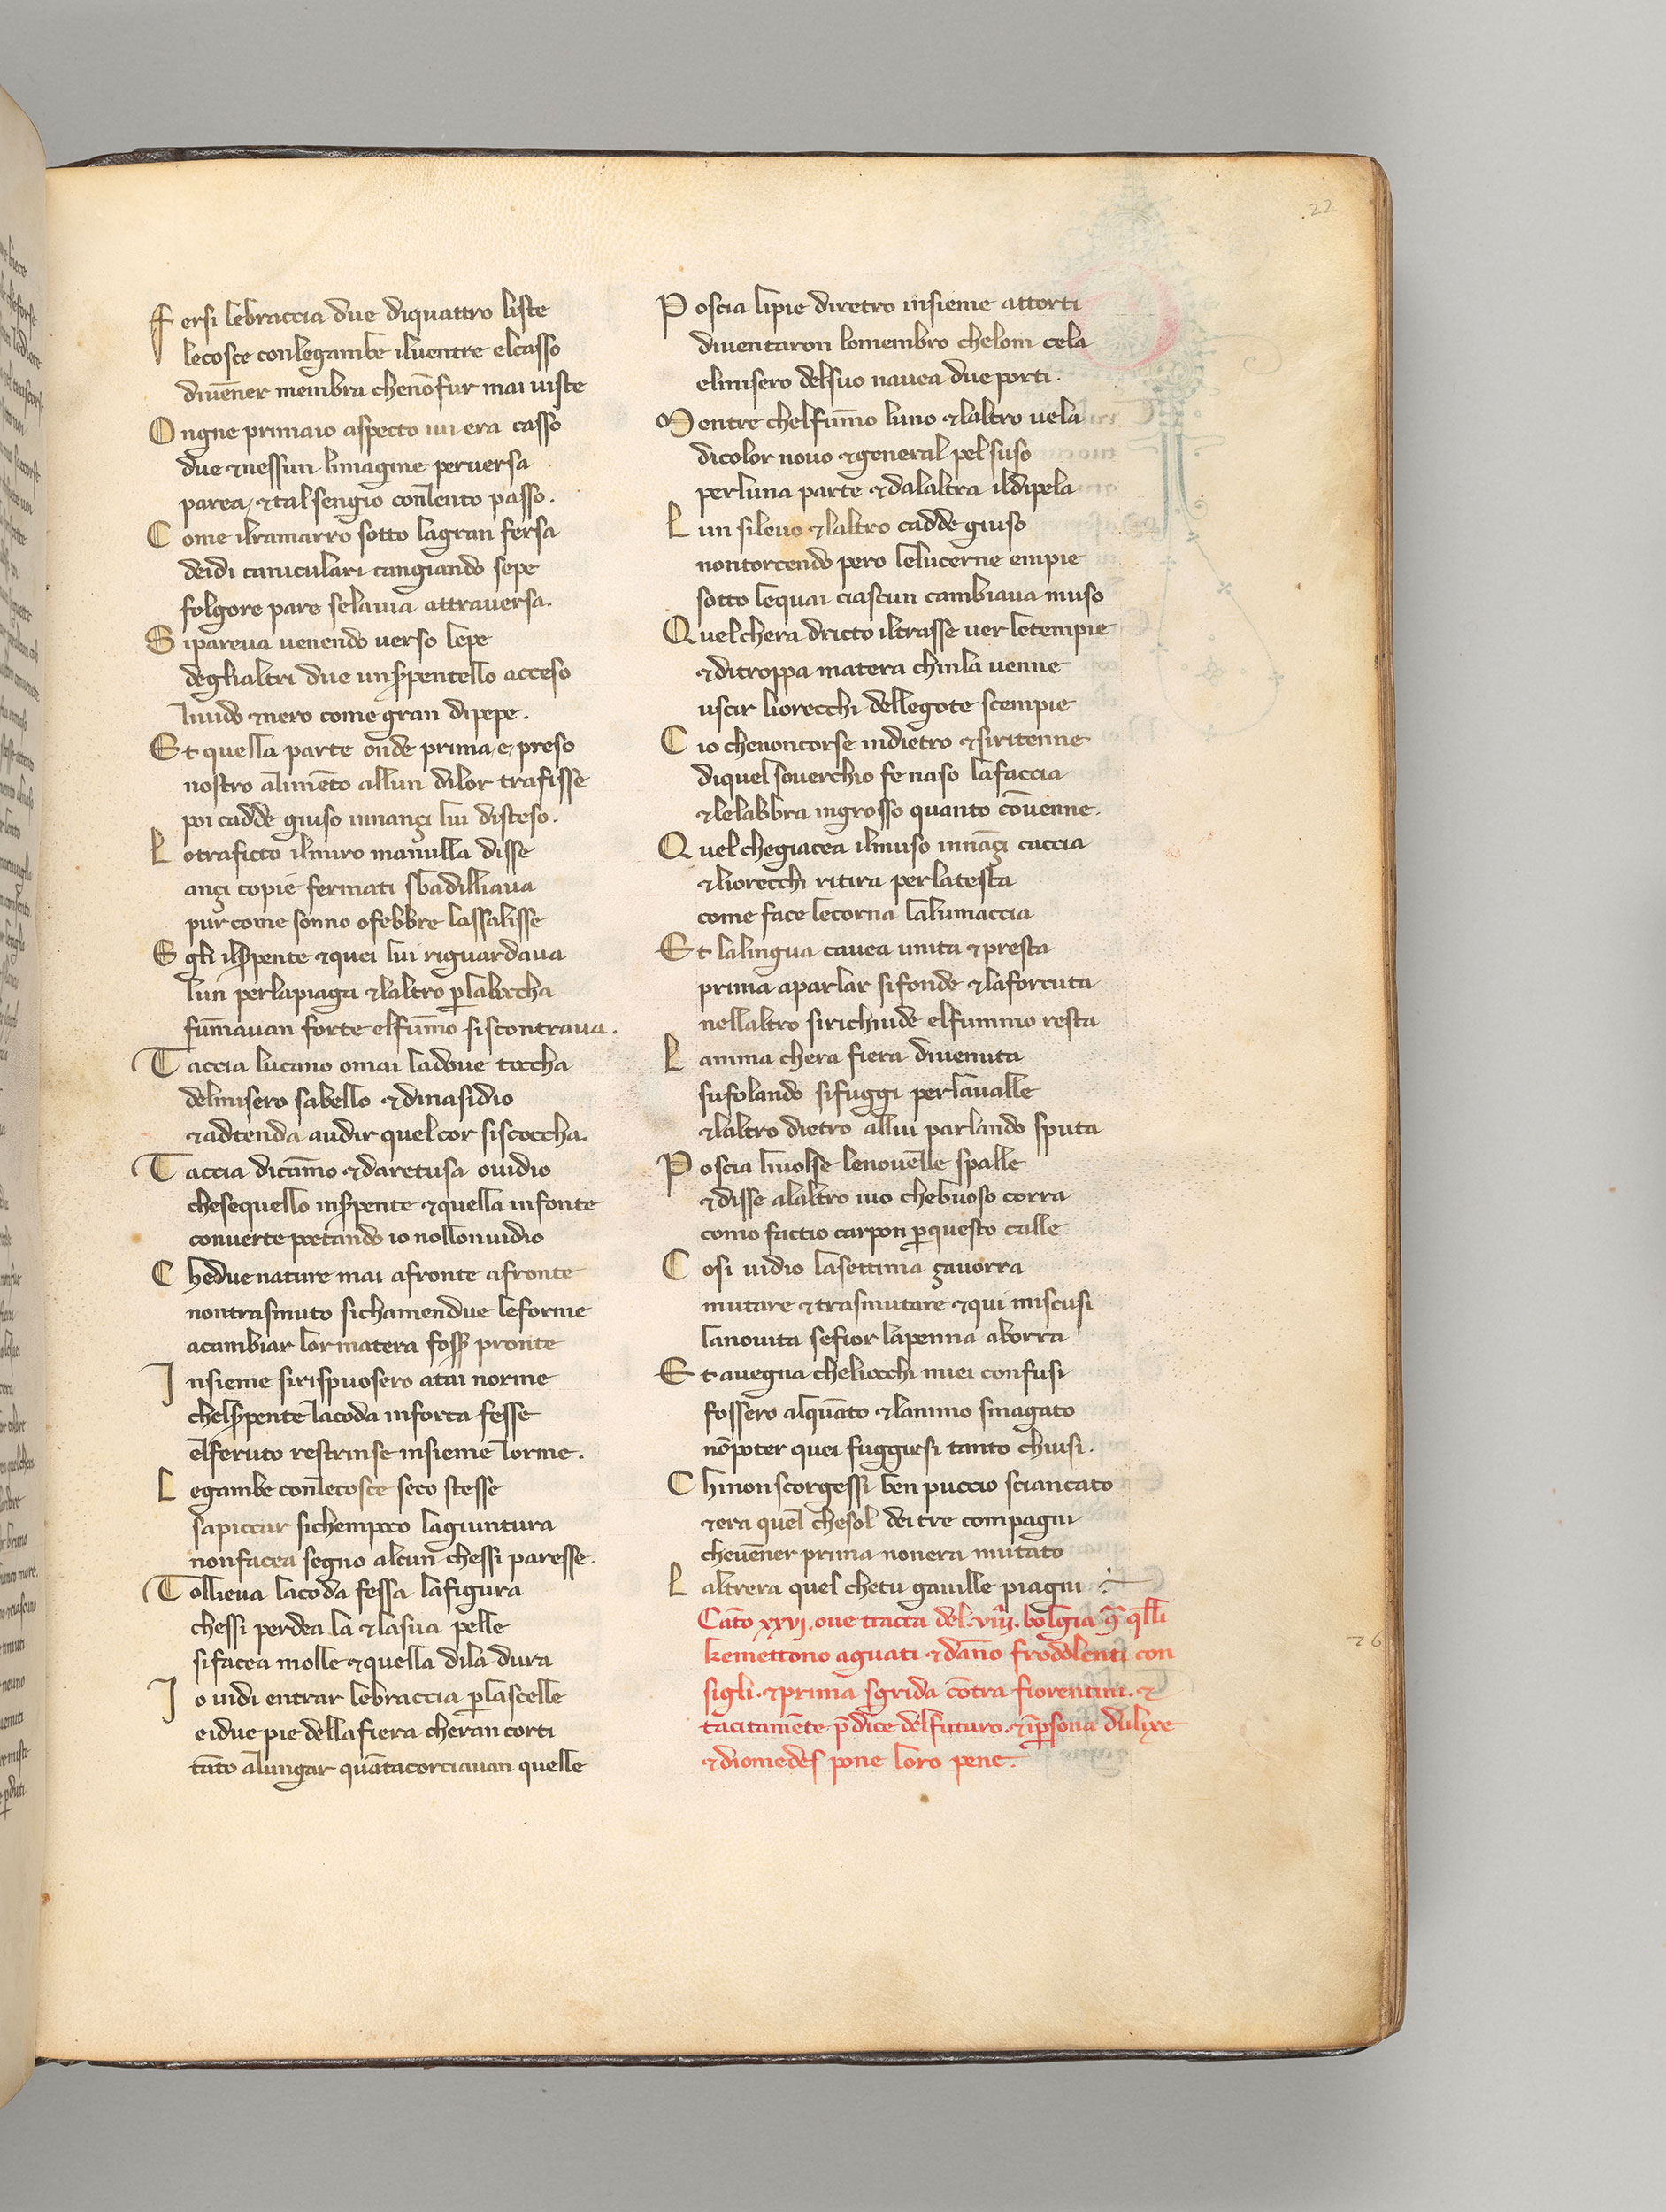 22
Fersi lebraccia due diquattro liste
lecosce conlegambe iluentre elcasso
diuēner membra chenōfur mai uiste
Ongne primaio aspecto iui era casso
due &nessun limagine peruersa
parea, &tal sengio conlento passo.
Come ilramarro sotto lagran fersa
deidi caniculari cangiando sepe
folgore pare selauia attrauersa.
Sipareua uenendo uerso lepe
deglialtri due unserpentello acceso
liuido &nero come gran dipepe.
Et quella parte onde prima, e, preso
nostro alimēto allun dilor trafisse
poi cadde giuso innançi lui disteso.
Lotraficto ilmiro manulla disse
ançi copie fermati sbadilliaua
pur come sonno ofebbre lassalisse
Egli ilserpente &quei lui riguardaua
lun perlapiaga &laltro p̱labocha
fūmauan forte elfūmo siscontraua.
Taccia lucano omai ladoue toccha
delmisero sabello &dinasidio
&adtenda audir quelcor siscoccha.
Taccia dicāmo &daretusa ouidio
chesequello inserpente &quella infonte
conuerte poetando io nolloinuidio
Cheduenature mai afronte afronte
nontrasmuto sichamendue leforme
acambiar lormatera fosser pronte
Insieme sirispuosero atai norme
chelserpente lacoda inforca fesse
elferuto restrinse insieme lorme.
Legambe conlecosce seco stesse
sapiccar sichempoco lagiuntura
nonfacea segno alcun chessi paresse.
Tollieua lacoda fessa lafigura
chessi perdea la &lasua pelle
sifacea molle &quella dila dura
Io uidi entrar lebraccia p̱lascelle
eidue pie dellafiera cheran corti
tāto alungar quātacorciauan quelle
Poscia lipie diretro insieme attorti
diuentaron lomembro chelom cela
elmisero delsuo nauea due porti.
Mentre chelfūmo luno &laltro uela
dicolor nouo &general pelsuso
perluna parte &dalaltra ildipela
Lun sileuo &laltro cadde giuso
nontorcendo pero lelucerne empie
sotto lequai ciascun cambiaua muso
Quelchera dricto iltrasse uer letempie
&ditroppa matera chinla uenne
uscir liorecchi dellegote scempie
Cio chenoncorse indietro &siritenne
diquel souerchio fe naso lafaccia
&lelabbra ingrosso quanto cōuenne.
Quel chegiacea ilmuso innāçi caccia
&liorecchi ritira perlatesta
come face lecorna lalumaccia
Et lalingua cauea unita &presta
prima aparlar sifende &laforcuta
nellaltro sirichiude elfummo resta
Lanima chera fiera diuenuta
sufolando sifuggi perlaualle
&laltro dietro allui parlando sputa
Poscia liuolse lenouelle spalle
&disse alaltro iuo chebuoso corra
como factio carpon p̱questo calle
Cosi uidio lasettima çauorra
mutare &trasmutare &qui miscusi
lanouita sefior lapenna aborra
Et auegna cheliocchi miei confusi
fossero alquāto &lanimo smagato
nōpoter quei fuggirsi tanto chiusi.
Chinonscorgessi ben puccio sciancato
&era quel chesol dei tre compagni
cheuēner prima nonera mutato
Laltrera quel chetu gauille piagni
Cāto xxvj. oue tracta del. viij. bolgia
kemettono aguati. &dāno frodolenti con
sigli. &prima sgrida cōtra fiorentini. &
tacitamēte p̄dice delfuturo. &īp̱sona dulixe
&diomedes pone loro pene.
26